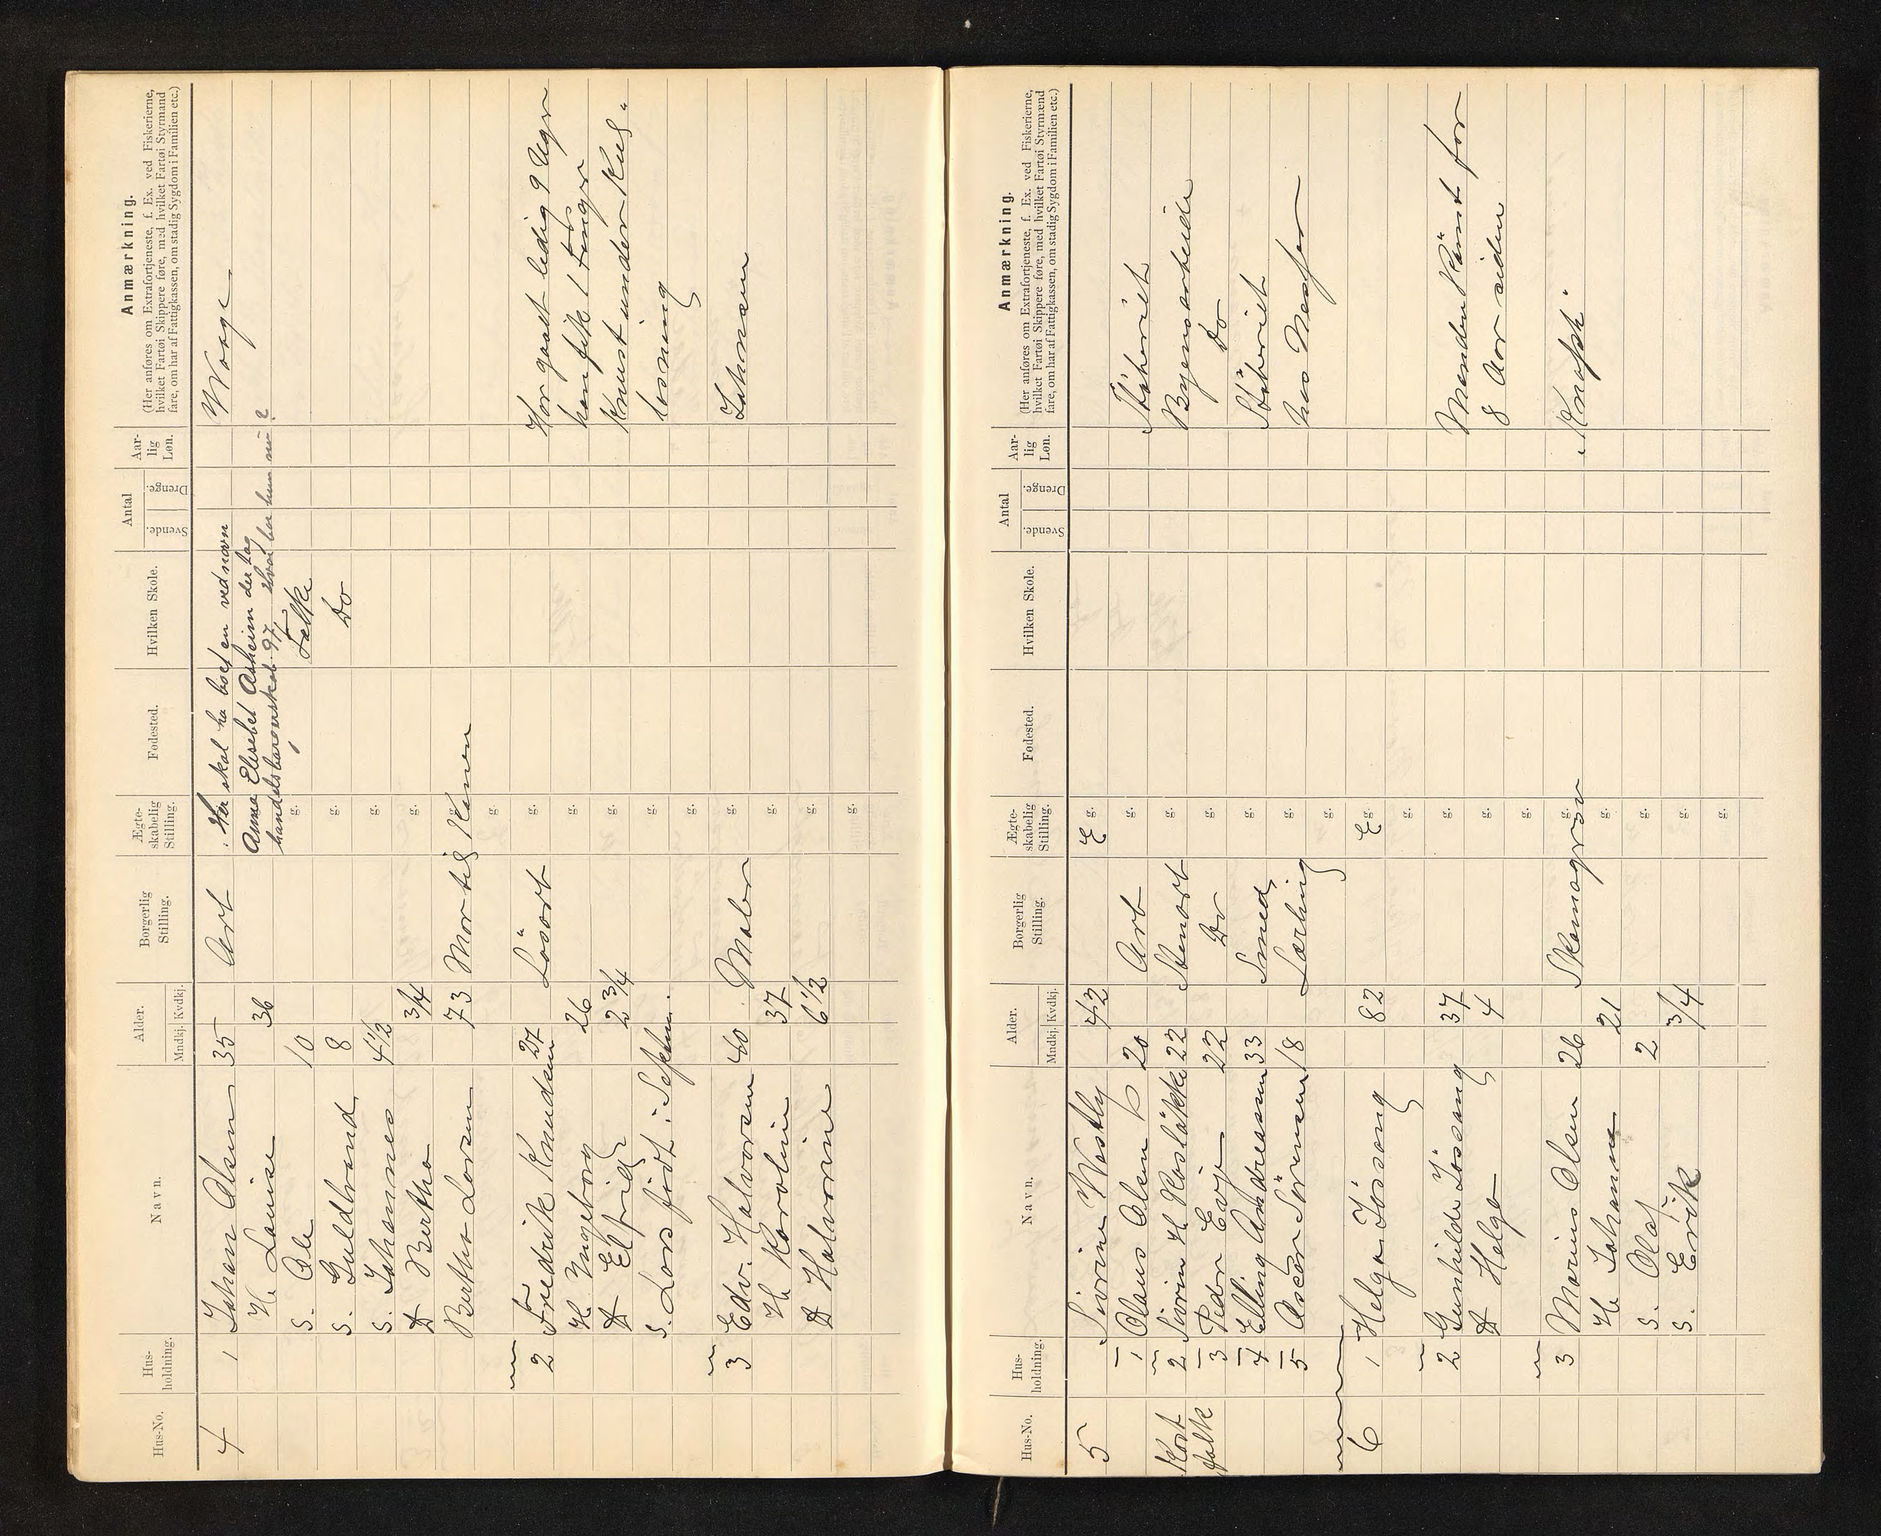 Hus-No.
Hus-
holdning.
Navn.
Alder.
Mndkj. Kvdkj.
Borgerlig
Stilling.
Ægte-
skabelig
Stilling.
Fødested.
Hvilken Skole.
Antal
Svende.
Drenge.
Aar-
lig
Løn.
Anmærkning.
(Her anføres om Extrafortjeneste, f. Ex. ved Fiskerierne,
hvilket Fartøi Skippere føre, med hvilket Fartøi Styrmænd
fare, om har af Fattigkassen, om stadig Sygdom i Familien etc.)
4 1 Johan Olsen 35 Arb Waage
Her skal ha boet en ved navn
H. Louise 36
Anna Elisabet Asheim der tog
handelsborgerskab 97. Hvor bor hun nu?
S. Ole 10 g. Fælke
S. Guldbrand 8 g. Do
S. Johannes 4½ g.
D Bertha 3/4 g.
Bertha Larsen 73 Mor til g. Konen
g.
2 Fredrik Knudsen 27 Løsarb g. Har gaaet ledig 9 Uger
H. Ingeborg 26 g. han fik 1 Finger
D Elfrid 2 3/4 g. knust under Kul-
S. Lars født i Septem. g. losning
g.
3 Edv. Halvorsen 40 Maler g. Johnsen
H Karoline 37 g.
D Halvorine 6½ g.
g.
Hus-No.
Hus-
holdning.
Navn.
Alder.
Mndkj. Kvdkj.
Borgerlig
Stilling.
Ægte-
skabelig
Stilling.
Fødested.
Hvilken Skole.
Antal
Svende.
Drenge.
Aar-
lig
Løn.
Anmærkning.
(Her anføres om Extrafortjeneste, f. Ex. ved Fiskerierne,
hvilket Fartøi Skippere føre, med hvilket Fartøi Styrmænd
fare, om har af Fattigkassen, om stadig Sygdom i Familien etc.)
5 Sivrine Westly 42 E g.
1 Olaus Olsen 20 Arb g. Støberiet
Kost 2 Sivrin H. Kosløkke 22 Stenarb g. Byensarbeide
folk 3 Peder Evje 22 Do g. Do
4 Elling Andreasen 33 Smed, g. Støberiet
5 Oscar Sørensen 18 Lærling g. hos Næsfer
g.
6 1 Helga Jøssang 82 E g.
g.
2 Gunhilde Jøssang 37 g. Manden kůnst for
D Helga 4 g. 8 Aar siden
g.
3 Marius Olsen 26 Skomagersv g.
H. Johanne 21 g.
S. Olaf 2 g.
S. Erik 3/4 g.
g.